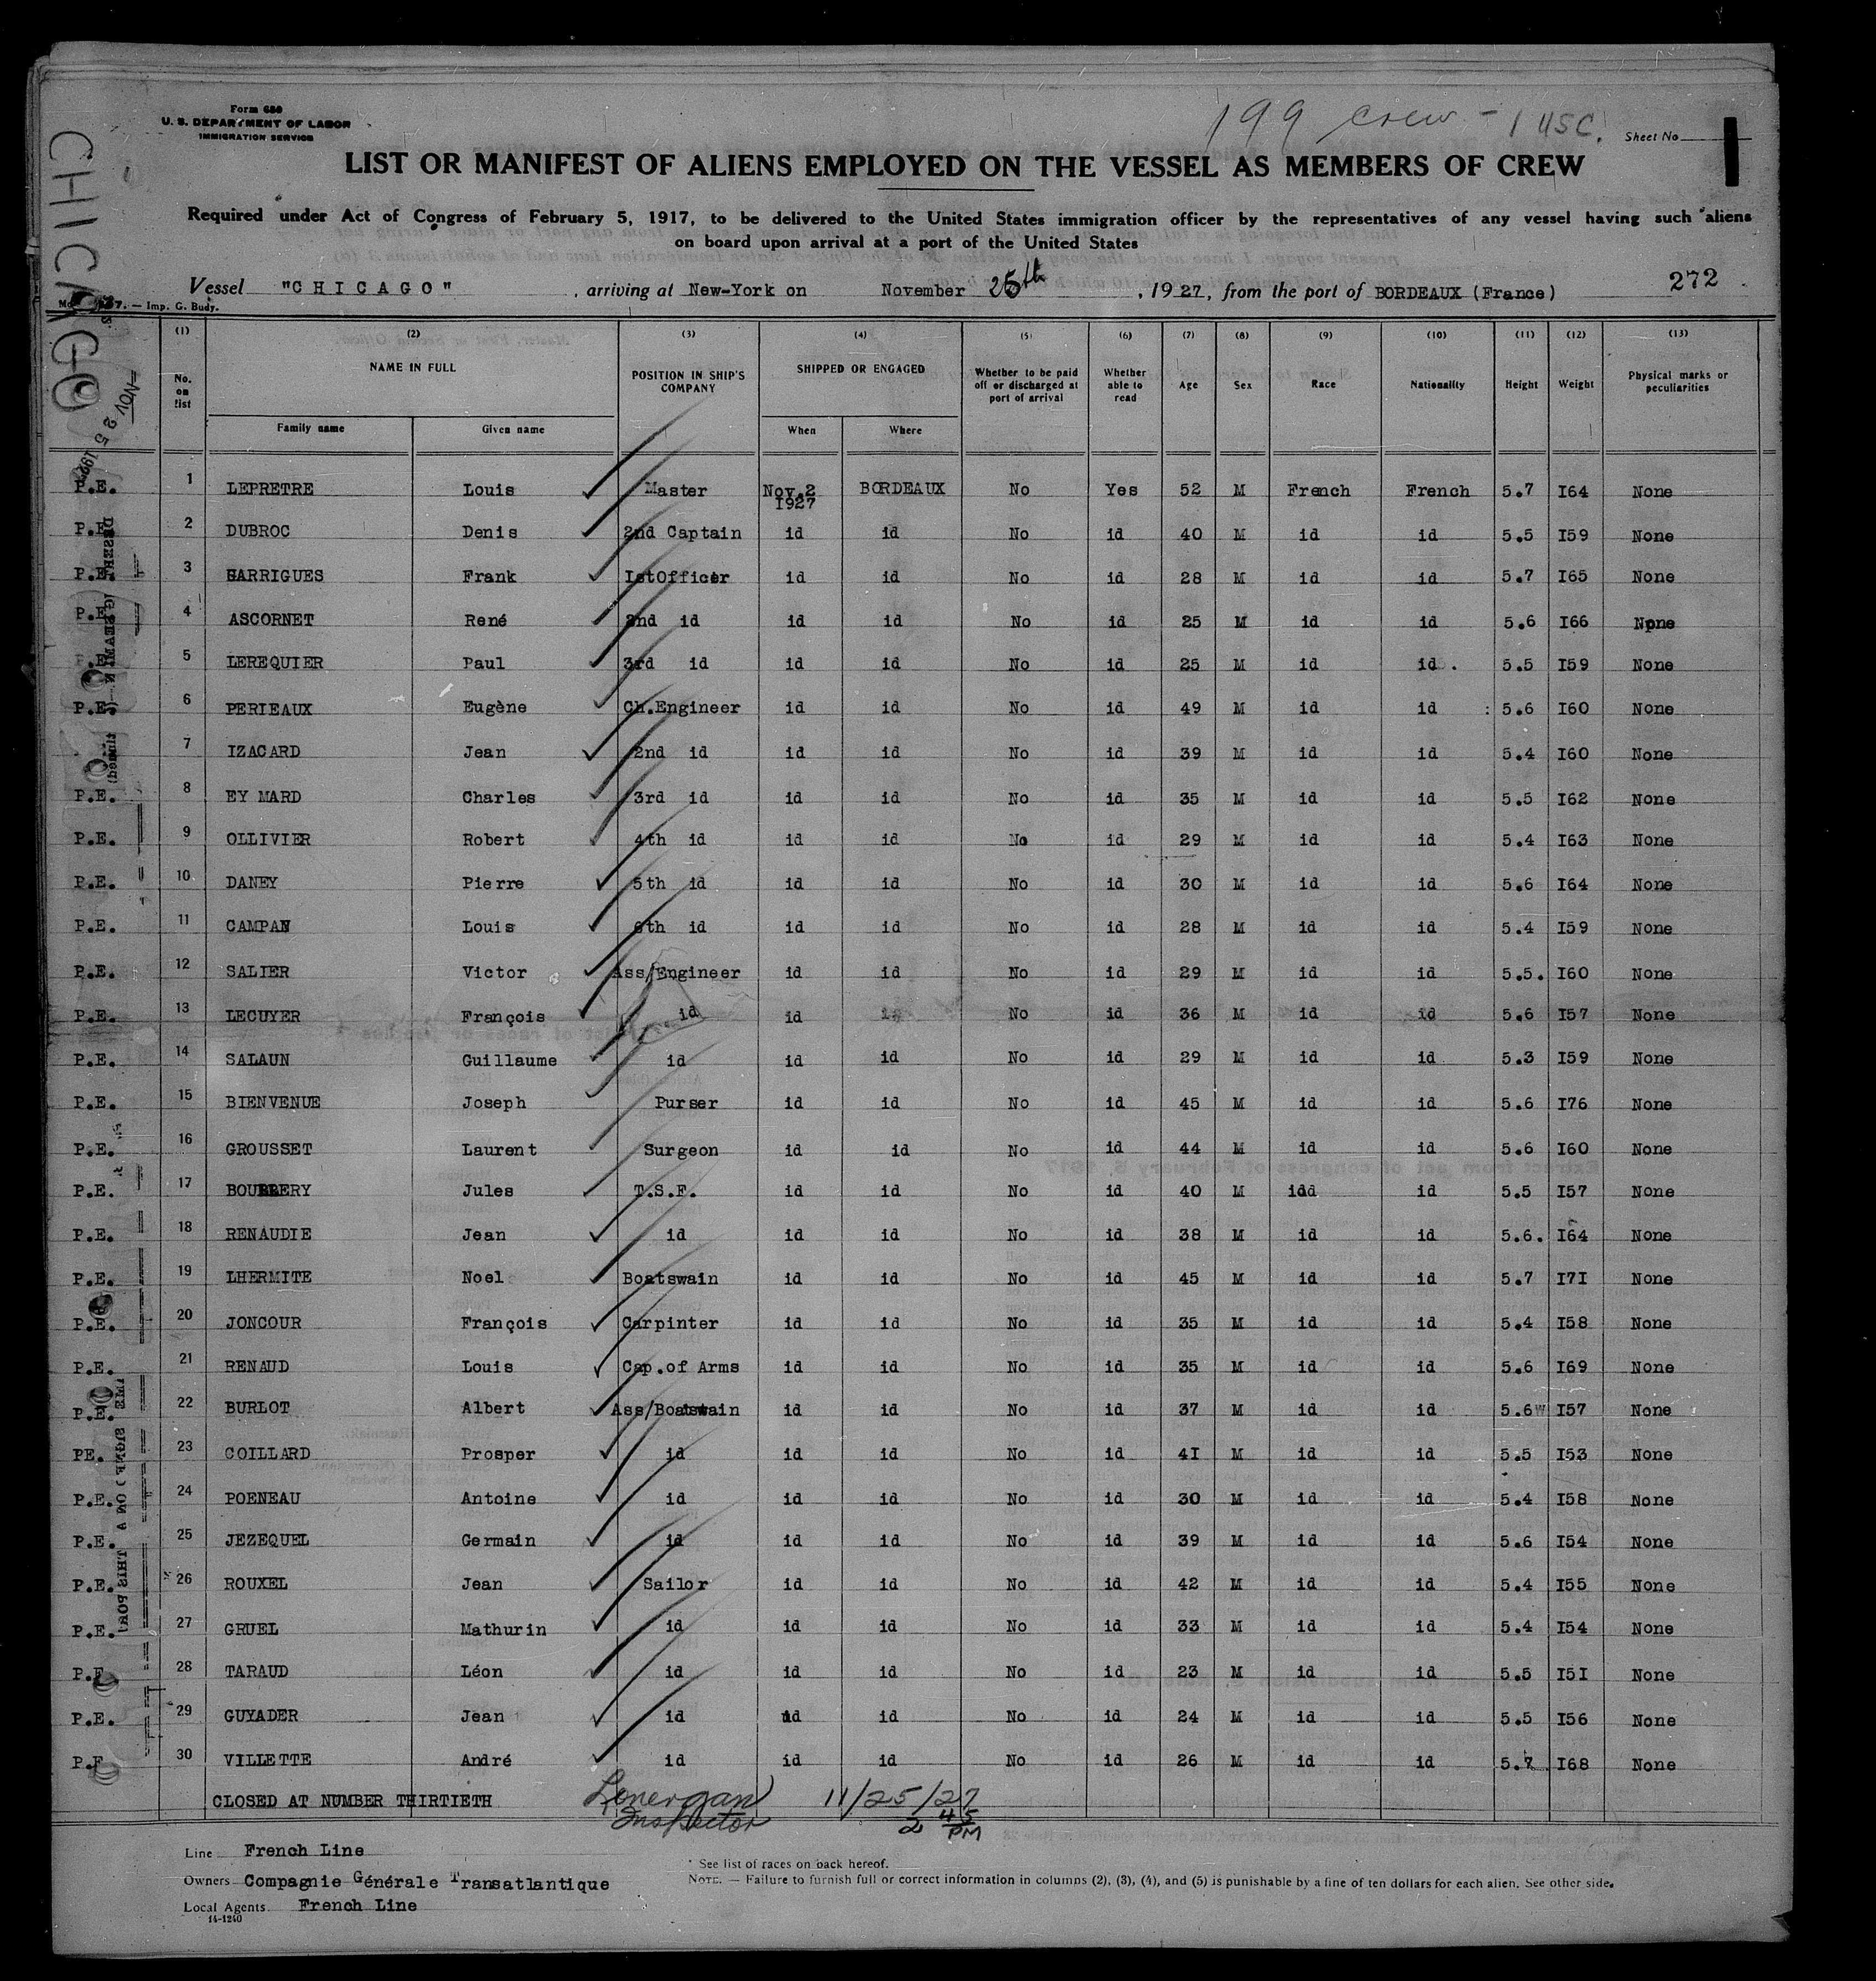 199 crew - 1 USC.
Form 680
U. S. DEPARTMENT OF LABOR
IMMIGRATION SERVICE
Sheet No 1
LIST OR MANIFEST OF ALIENS EMPLOYED ON THE VESSEL AS MEMBERS OF CREW
Required under Act of Congress of February 5, 1917, to be delivered to the United States immigration officer by the representatives of any vessel having such aliens
on board upon arrival at a port of the United States
CHICAGO
Vessel "CHICAGO", arriving at New-York on November 25th, 1927, from the port of BORDEAUX (France) 272
— Imp. G. Budy.
NOV 25 1927
(1) (2) (3) (4) (5) (6) (7) (8) (9) (10) (11) (12) (13)
No. on list NAME IN FULL POSITION IN SHIP'S COMPANY SHIPPED OR ENGAGED Whether to be paid off or discharged at port of arrival Whether able to read Age Sex Race Nationality Height Weight Physical marks or peculiarities
Family name Given name When Where
P.E. 1 LEPRETRE Louis Master Nov.2 1927 BORDEAUX No Yes 52 M French French 5.7 I64 None
P.E. 2 DUBROC Denis 2nd Captain id id No id 40 M id id 5.5 I59 None
P.E. 3 GARRIGUES Frank IstOfficer id id No id 28 M id id 5.7 I65 None
P.E. 4 ASCORNET René 2nd id id id No id 25 M id id 5.6 I66 None
P.E. 5 LEREQUIER Paul 3rd id id id No id 25 M id id. 5.5 I59 None
P.E. 6 PERIEAUX Eugène Ch.Engineer id id No id 49 M id id : 5.6 I60 None
7 IZACARD Jean 2nd id id id No id 39 M id id 5.4 I60 None
P.E. 8 EY MARD Charles 3rd id id id No id 35 M id id 5.5 I62 None
P.E. 9 OLLIVIER Robert 4th id id id No id 29 M id id 5.4 I63 None
P.E. 10 DANEY Pierre 5th id id id No id 30 M id id 5.6 I64 None
P.E. 11 CAMPAN Louis 6th id id id No id 28 M id id 5.4 I59 None
P.E. 12 SALIER Victor Ass/Engineer id id No id 29 M id id 5.5. I60 None
P.E. 13 LECUYER François id id id No id 36 M id id 5.6 I57 None
P.E. 14 SALAUN Guillaume id id id No id 29 M id id 5.3 I59 None
P.E. 15 BIENVENUE Joseph Purser id id No id 45 M id id 5.6 I76 None
P.E. 16 GROUSSET Laurent Surgeon id id No id 44 M id id 5.6 I60 None
P.E. 17 Jules T.S.F. id id No id 40 M idd id 5.5 I57 None
P.E. 18 RENAUDIE Jean id id id No id 38 M id id 5.6. I64 None
P.E. 19 LHERMITE Noel Boatswain id id No id 45 M id id 5.7 I7I None
P.E. 20 JONCOUR François Carpinter id id No id 35 M id id 5.4 I58 None
P.E. 21 RENAUD Louis Cap.of Arms id id No id 35 M id id 5.6 I69 None
P.E. 22 BURLOT Albert Ass/Boatswain id id No id 37 M id id 5.6W I57 None
PE. 23 COILLARD Prosper id id id No id 4I M id id 5.5 I53 None
P.E. 24 POENEAU Antoine id id id No id 30 M id id 5.4 I58 None
P.E. 25 JEZEQUEL Germain id id id No id 39 M id id 5.6 I54 None
P.E. 26 ROUXEL Jean Sailor id id No id 42 M id id 5.4 I55 None
P.E. 27 GRUEL Mathurin id id id No id 33 M id id 5.4 I54 None
P.E 28 TARAUD Léon id id id No id 23 M id id 5.5 I5I None
P.E. 29 GUYADER Jean id id id No id 24 M id id 5.5 I56 None
P.E 30 VILLETTE André id id id No id 26 M id id 5.7 I68 None
CLOSED AT NUMBER THIRTIETH Lonergan 11/25/27
Inspector 2 45 PM
Line French Line
* See list of races on back hereof.
Owners Compagnie Générale Transatlantique
NOTE. — Failure to furnish full or correct information in columns (2), (3), (4), and (5) is punishable by a fine of ten dollars for each alien. See other side.
Local Agents French Line
14-1240